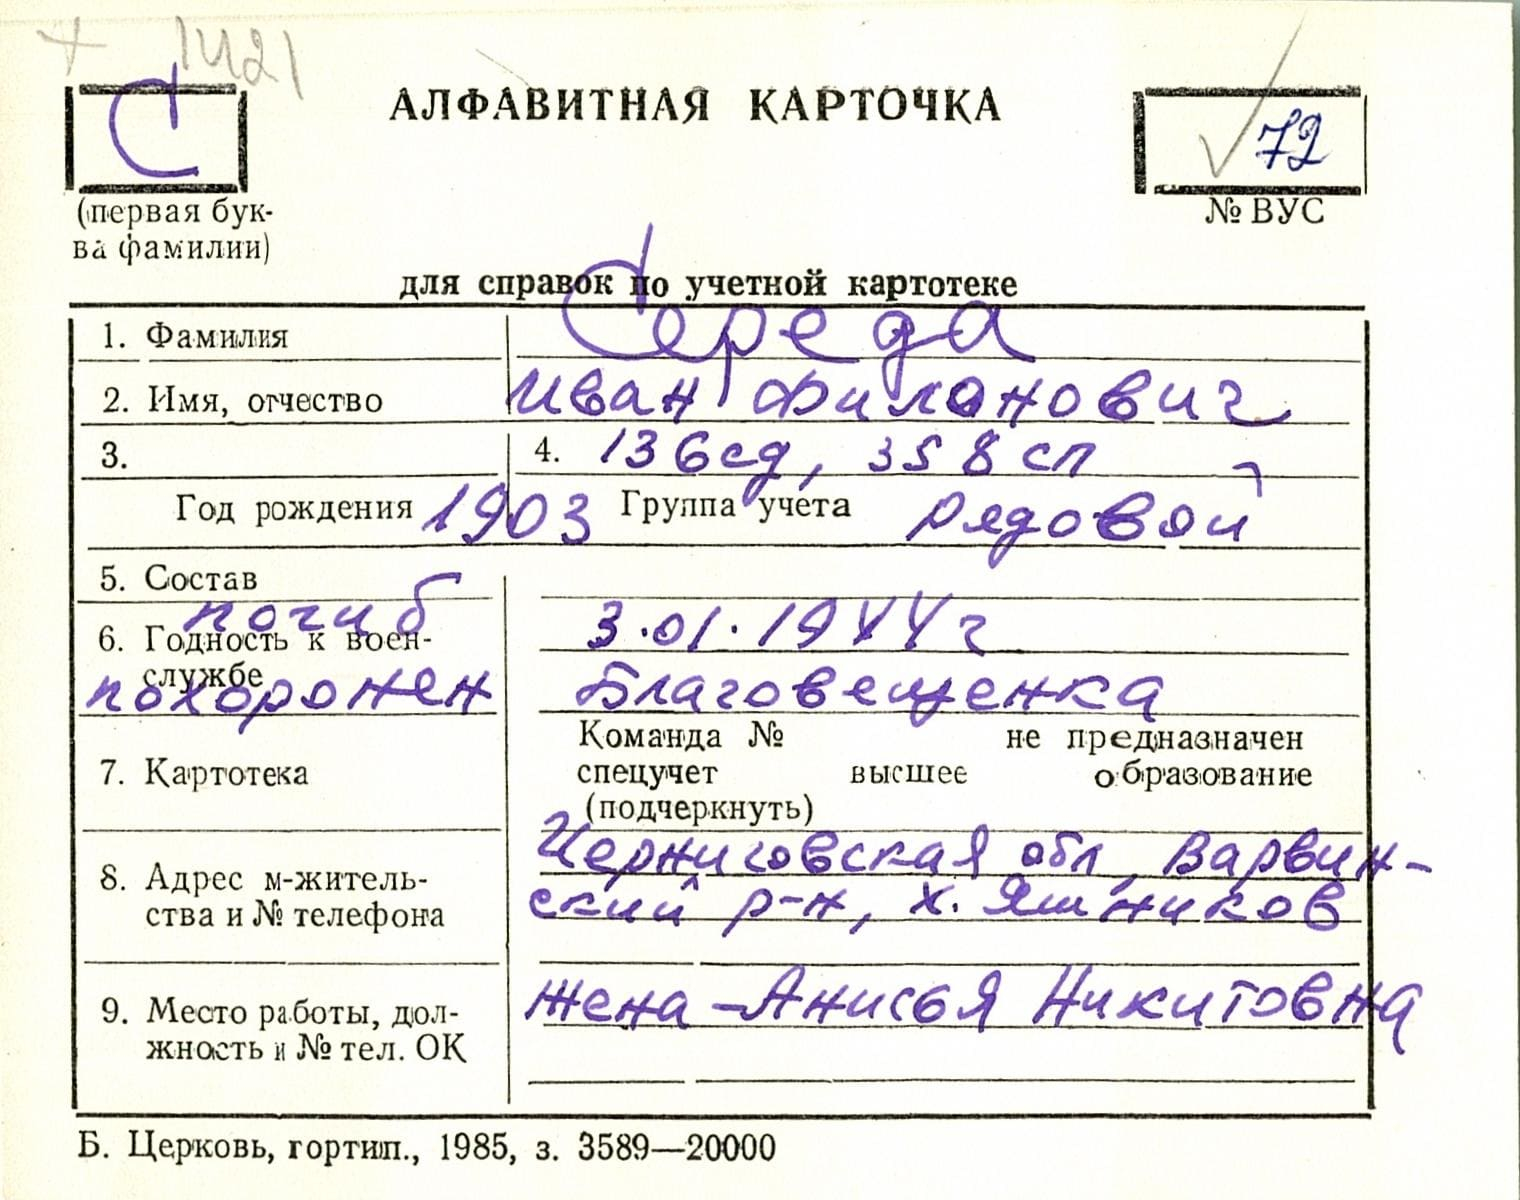 + 1421
С
АЛФАВИТНАЯ КАРТОЧКА
72
(первая бук-
ва фамилии)
№ ВУС
для справок по учетной картотеке
1. Фамилия Середа
2. Имя, отчество Иван Филонович
3. 4. 136сд, 358 сп
Год рождения 1903 Группа учета рядовой
5. Состав
погиб 3.01.1944г
6. Годность к воен-
службе
похоронен Благовещенка
7. Картотека
Команда № не предназначен
спецучет высшее образование
(подчеркнуть)
8. Адрес м-житель-
ства и № телефона
Черниговская обл, Варвин-
ский р-н, х. Яшников
9. Место работы, дол-
жность и № тел. ОК
жена - Анисья Никитовна
Б. Церковь, гортип., 1985, з. 3589—20000